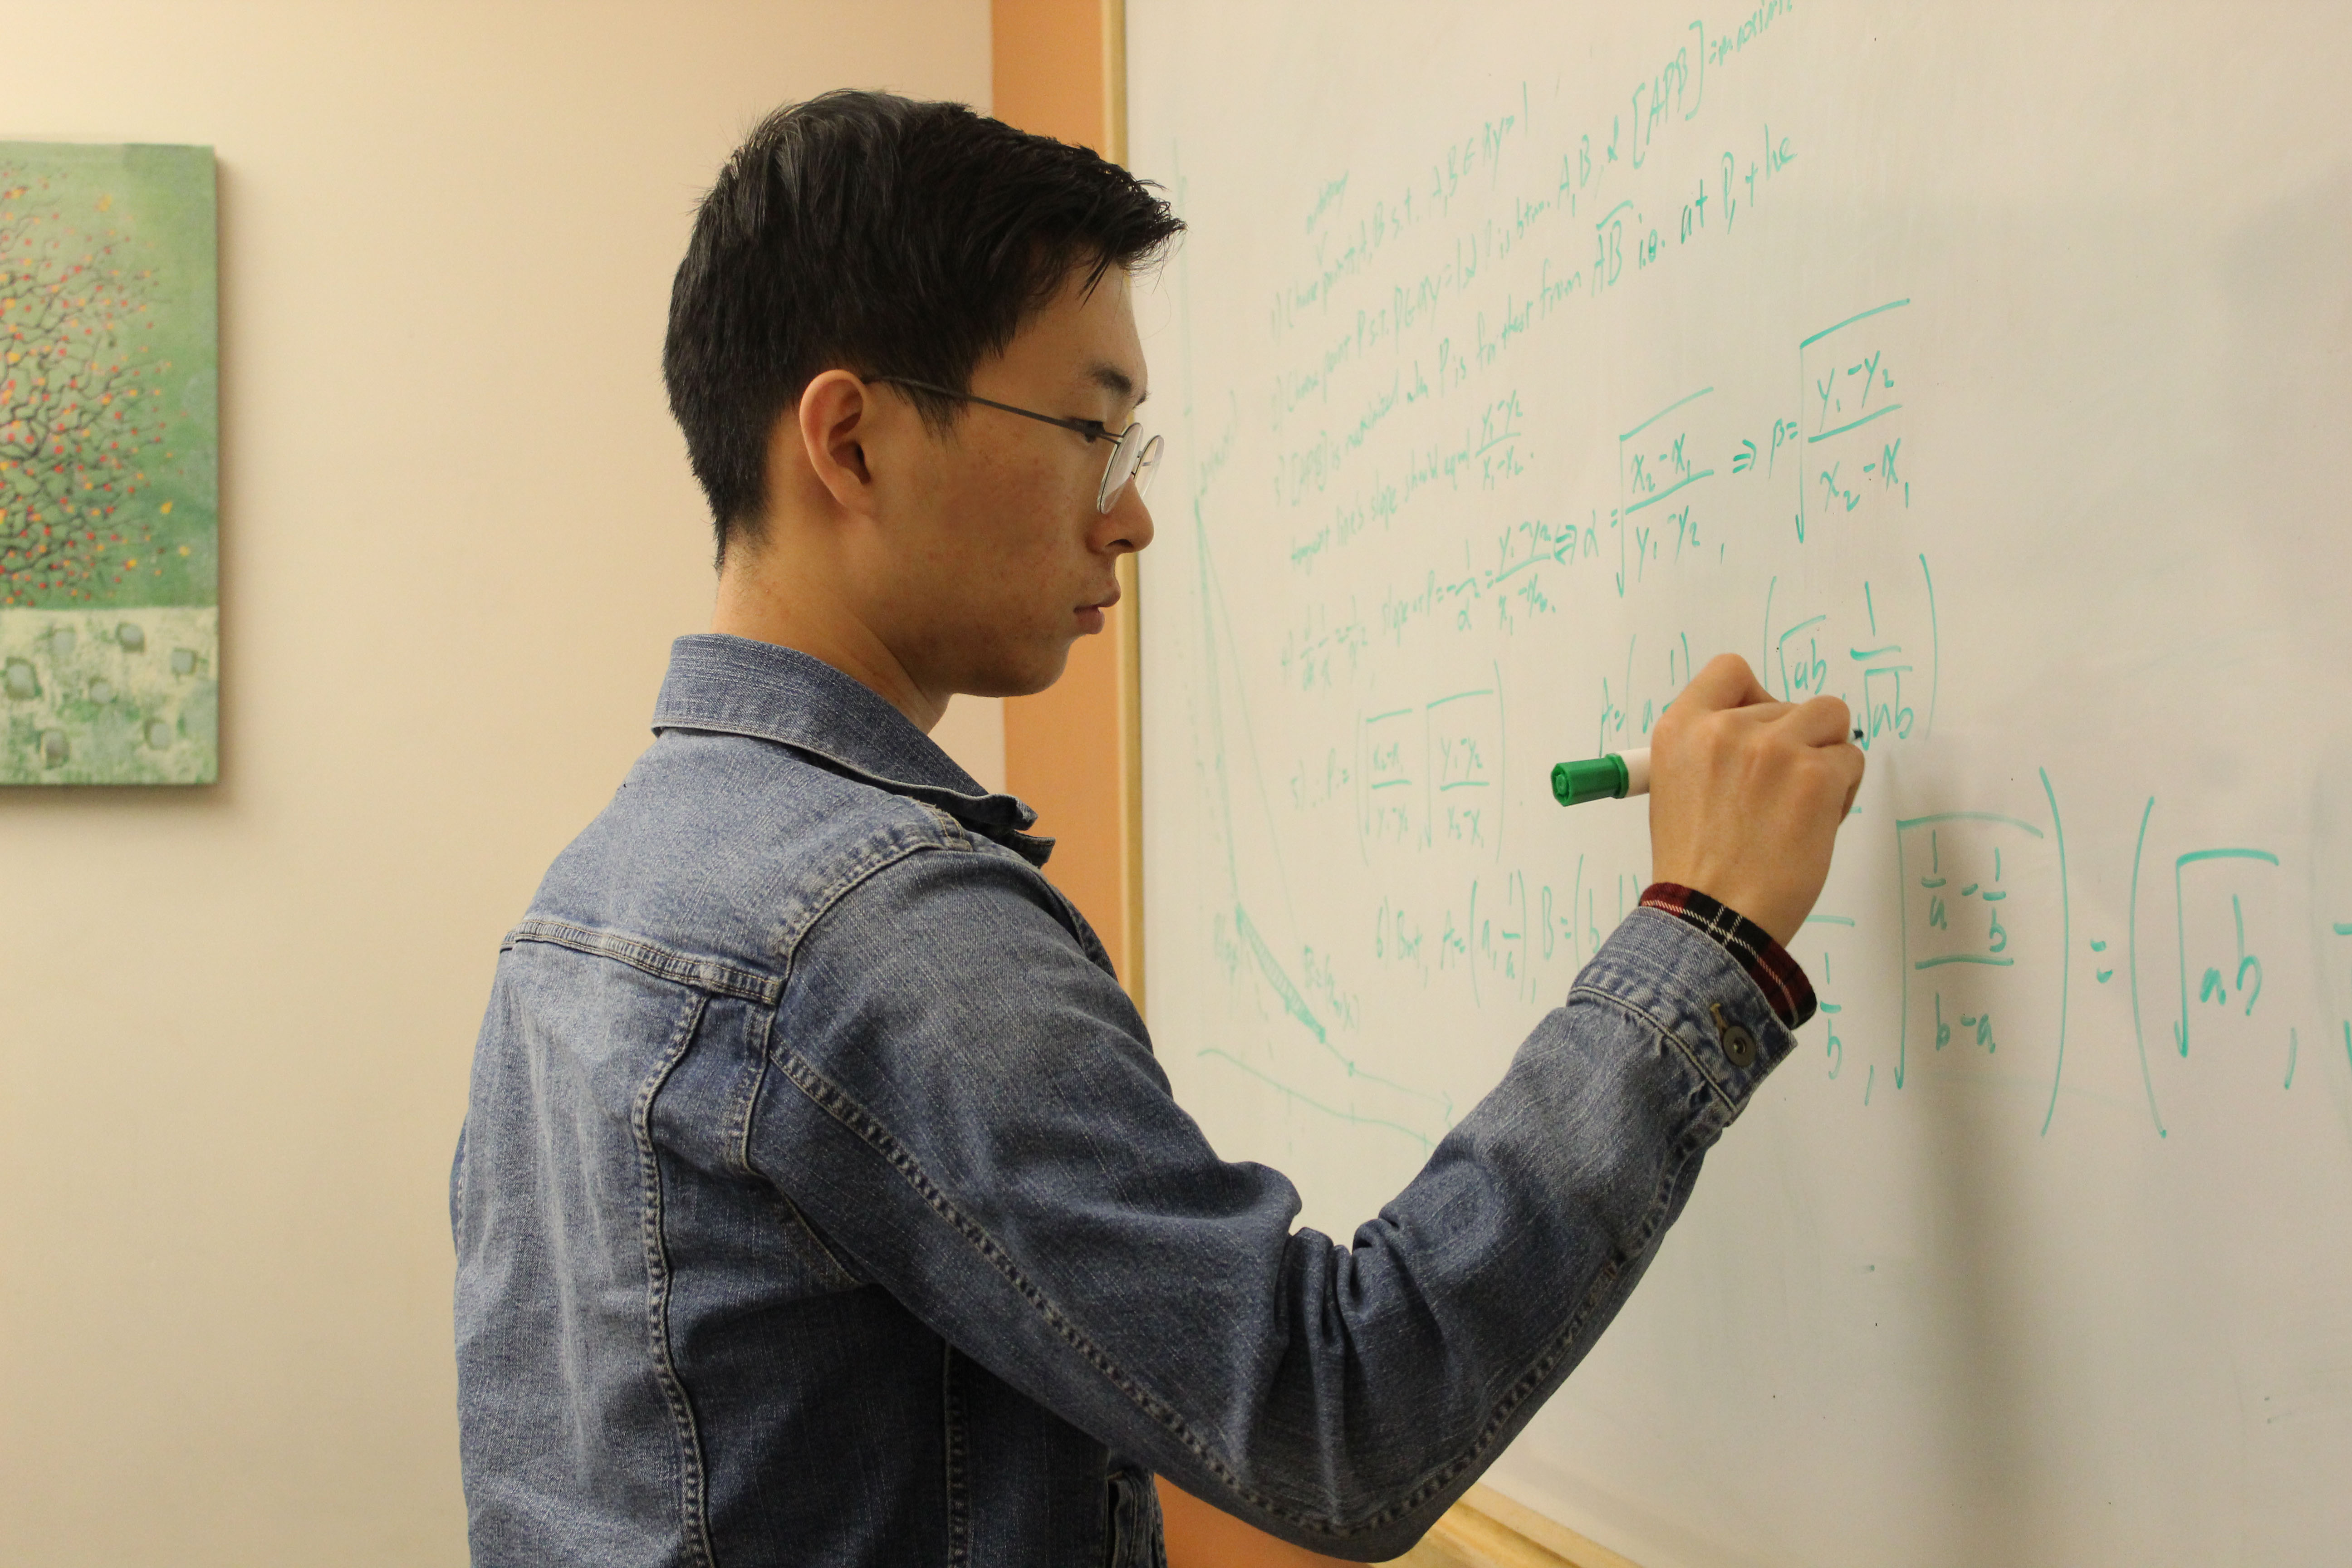 1) Choose points A, B s.t. A, B ∈ xy=1
2) Choose point P s.t. P ∈ xy=1 & P is btwn. A, B, & [APB] = maximum
3) [APB] is maximized when P is farthest from AB i.e. at P, the
tangent line's slope should equal (y₁-y₂)/(x₁-x₂).
4) slope at P = -1/α² = (y₁-y₂)/(x₁-x₂) ⇔ α = √((x₂-x₁)/(y₁-y₂)), ⇒ β = √((y₁-y₂)/(x₂-x₁))
5) ∴ P = (√((x₂-x₁)/(y₁-y₂)), √((y₁-y₂)/(x₂-x₁))).
A=(a, 1 (√ab, 1/√ab)
6) But, A=(a, 1/a), B=(b, 1
1/b, √((1/a - 1/b)/(b-a))) = (√ab,